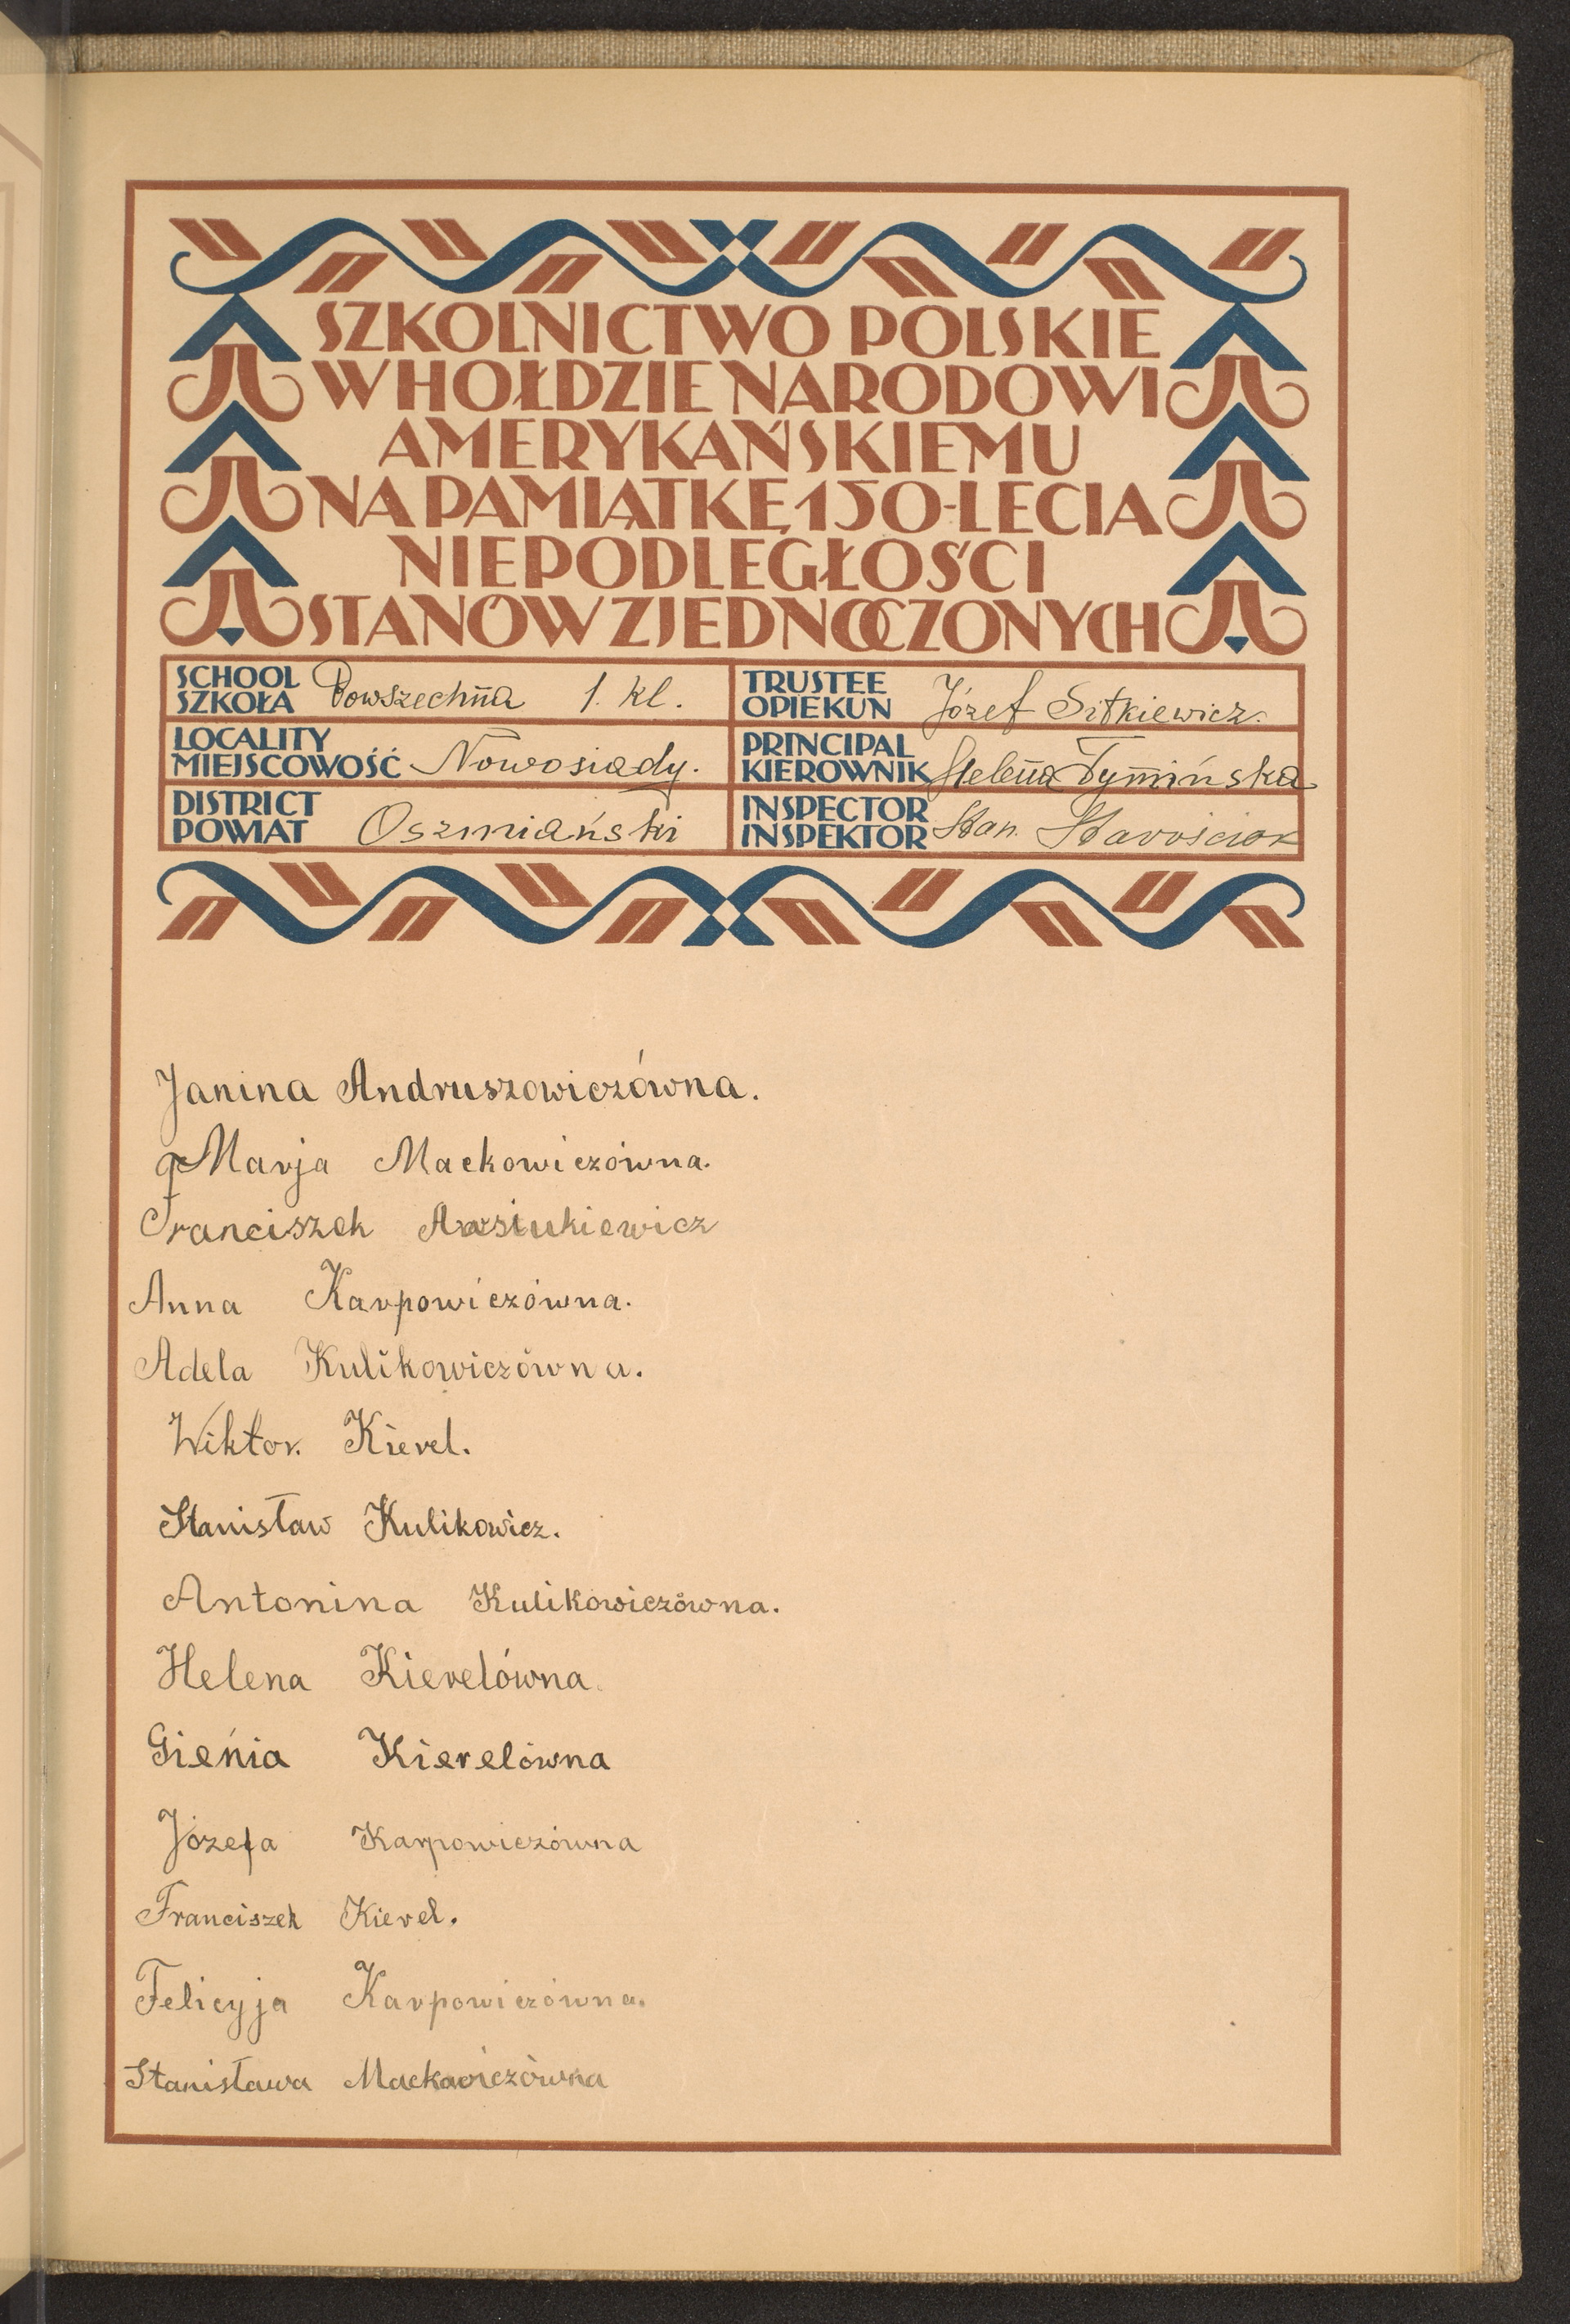 SZKOLNICTWO POLSKIE
W HOŁDZIE NARODOWI
AMERYKAŃSKIEMU
NA PAMIĄTKĘ 150-LECIA
NIEPODLEGŁOŚCI
STANÓW ZJEDNOCZONYCH
SCHOOL
SZKOŁA Powszechna 1. kl.
TRUSTEE
OPIEKUN Józef Sitkiewicz.
LOCALITY
MIEJSCOWOŚĆ Nowosiady.
PRINCIPAL
KIEROWNIK Helena Tymińska
DISTRICT
POWIAT Oszmiański
INSPECTOR
INSPEKTOR Stan. Starościak
Janina Andruszowiczówna.
Marja Mackowiczówna.
Franciszek Arsiukiewicz
Anna Karpowiczówna.
Adela Kulikowiczówna.
Wiktor. Kierel.
Stanisław Kulikowicz.
Antonina Kulikowiczówna.
Helena Kierelówna.
Gieńia Kierelówna
Józefa Karpowiczówna
Franciszek Kierel.
Felicyja Karpowiczówna.
Stanisława Mackowiczówna